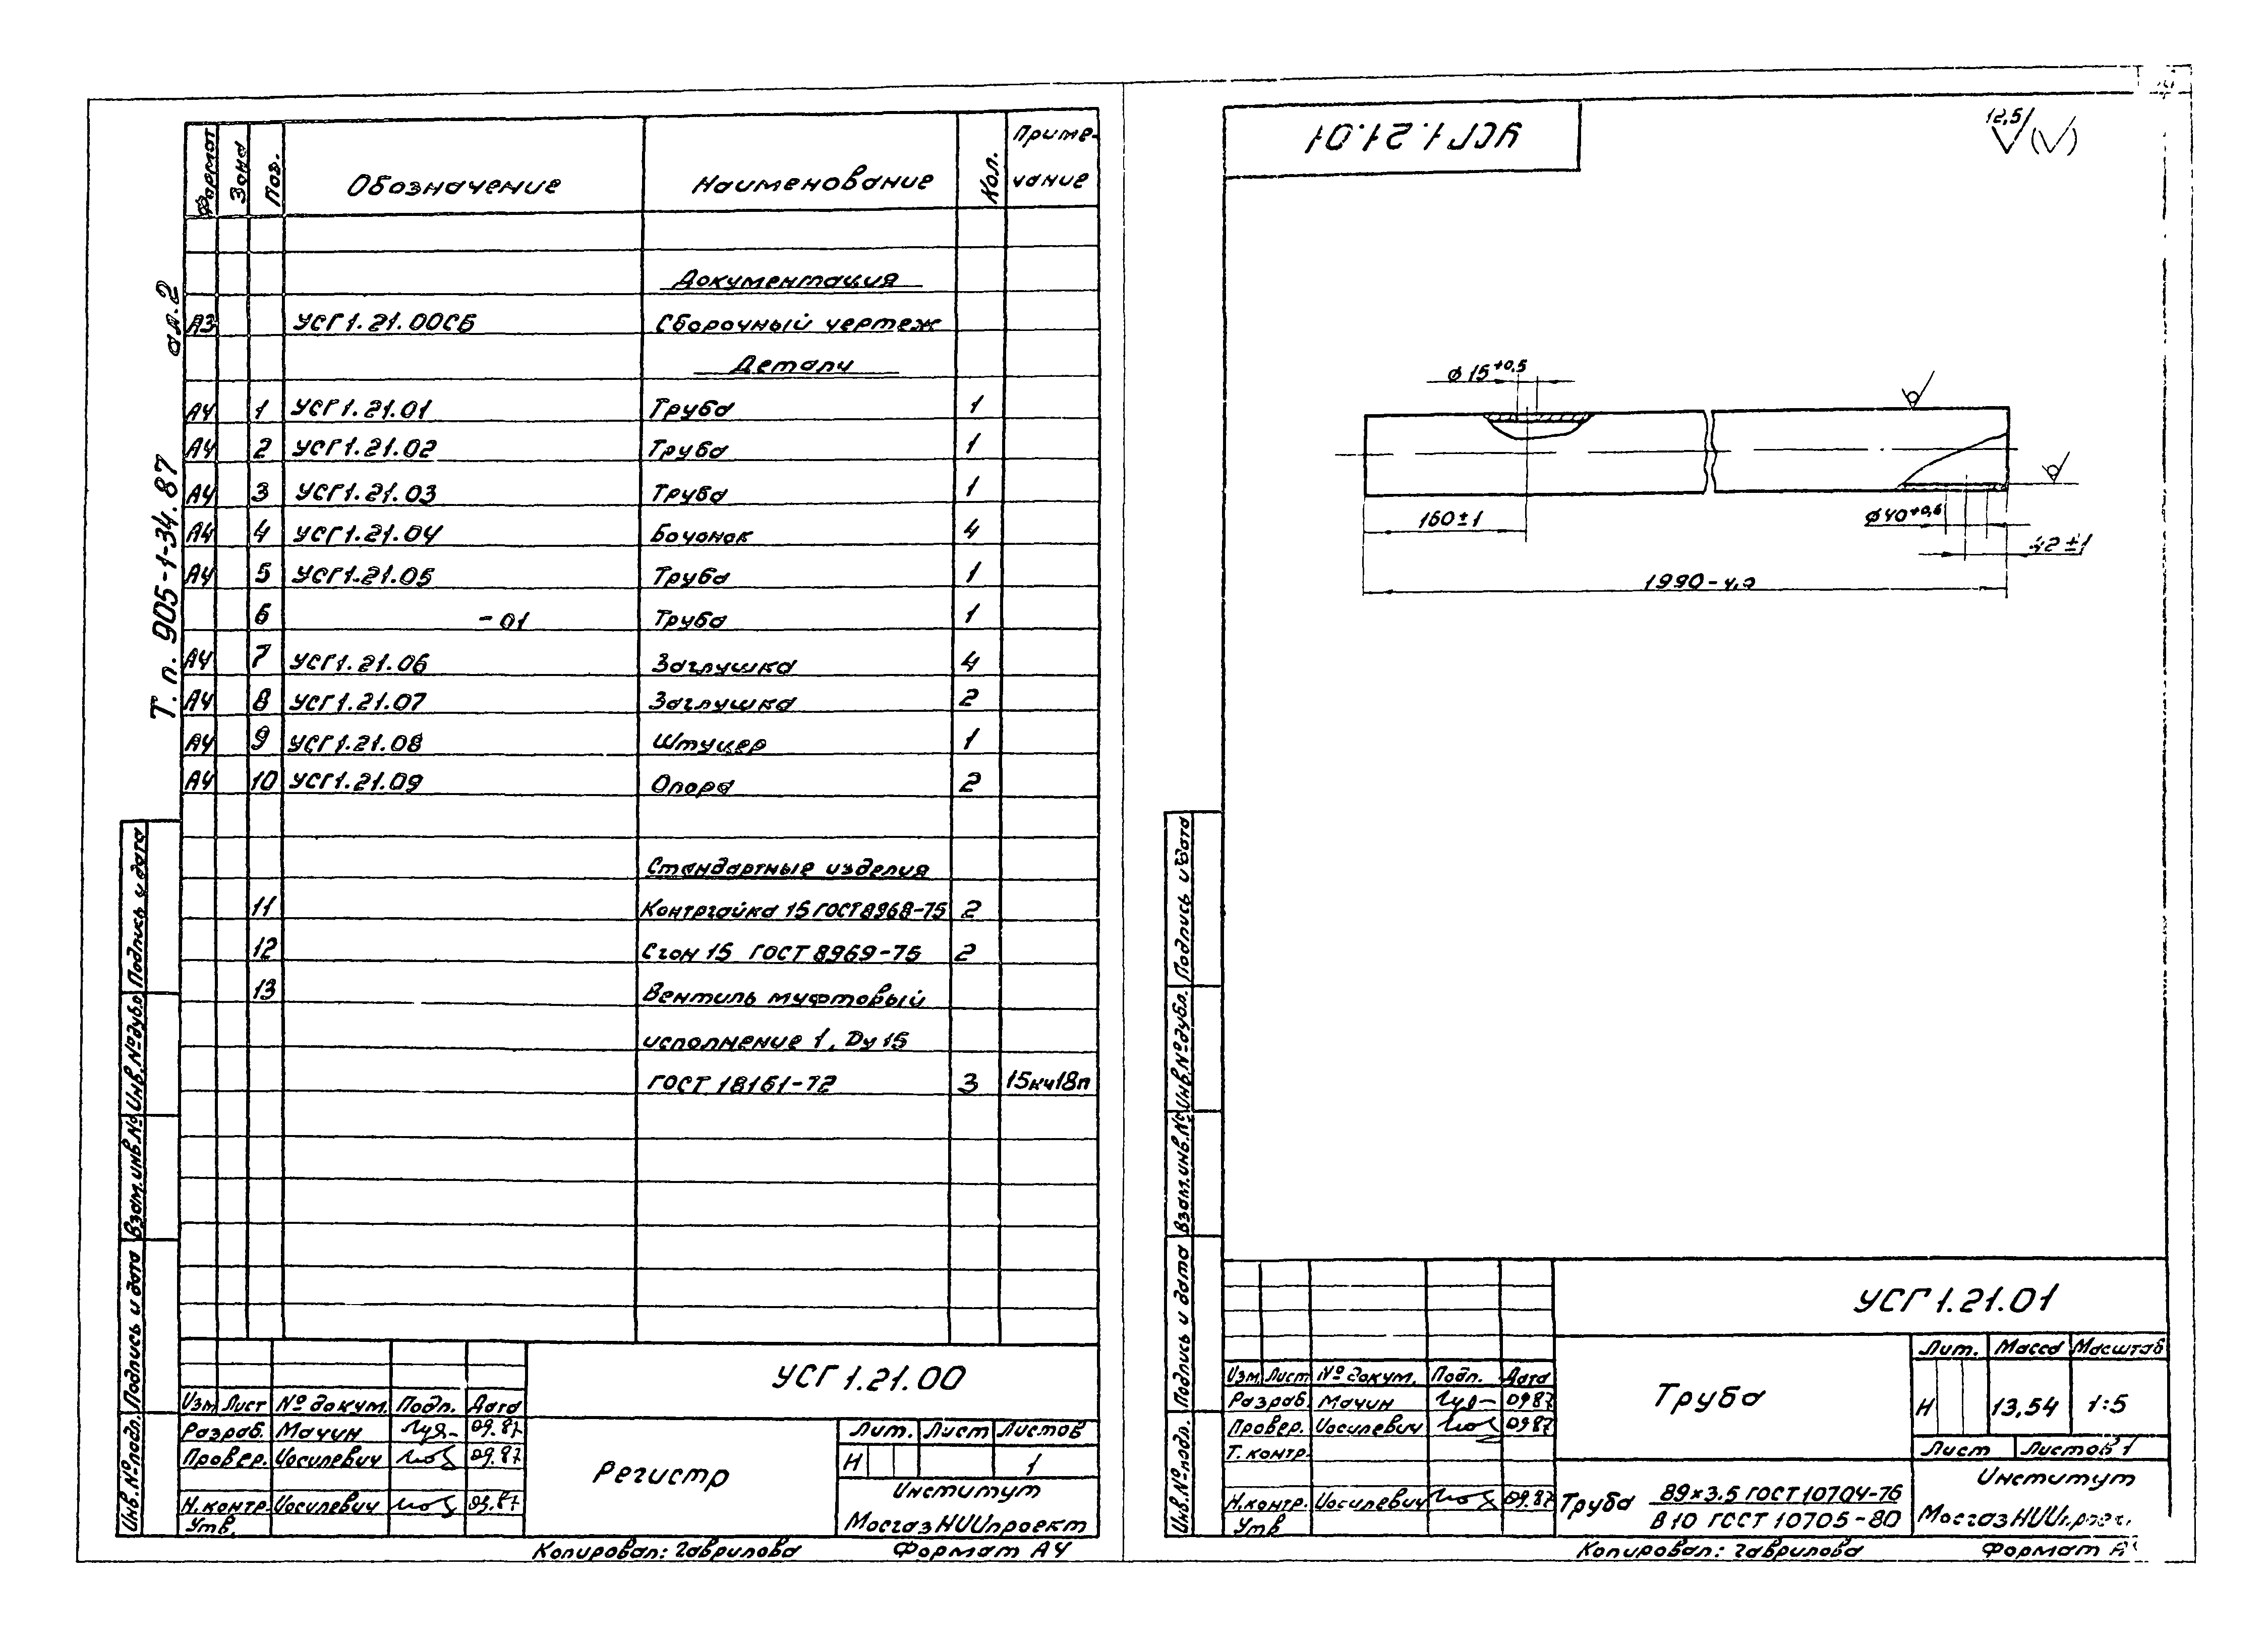 Т. п. 905-1-34.87 ал.2
Формат Зона Поз. Обозначение Наименование Кол. Приме-
чание
Документация
А3 УСГ1.21.00СБ Сборочный чертеж
Детали
А4 1 УСГ1.21.01 Труба 1
А4 2 УСГ1.21.02 Труба 1
А4 3 УСГ1.21.03 Труба 1
А4 4 УСГ1.21.04 Бочонок 4
А4 5 УСГ1.21.05 Труба 1
6 -01 Труба 1
А4 7 УСГ1.21.06 Заглушка 4
А4 8 УСГ1.21.07 Заглушка 2
А4 9 УСГ1.21.08 Штуцер 1
А4 10 УСГ1.21.09 Опора 2
Стандартные изделия
11 Контргайка 15 ГОСТ 8968-75 2
12 Сгон 15 ГОСТ 8969-75 2
13 Вентиль муфтовый
исполнение 1, Ду 15
ГОСТ 18161-72 3 15кч18п
Инв.№ подл. Подпись и дата Взам.инв.№ Инв.№ дубл. Подпись и дата
УСГ 1.21.00
Изм Лист № докум. Подп. Дата
Разраб. Мачин 09.87
Провер. Иосилевич 09.87
Н.контр. Иосилевич 09.87
Утв.
Регистр
Лит. Лист Листов
Н 1
Институт
МосгазНИИпроект
Копировал: Гаврилова Формат А4
УСГ1.21.01
12,5 (√)
ϕ15+0,5
160±1
ϕ40+0,6
42±1
1990-4,0
Инв.№ подл. Подпись и дата Взам.инв.№ Инв.№ дубл. Подпись и дата
УСГ1.21.01
Изм. Лист № докум. Подп. Дата
Разраб. Мачин 0987
Провер. Иосилевич 0987
Т. контр.
Н.контр. Иосилевич 09.87
Утв
Труба
Лит. Масса Масштаб
Н 13,54 1:5
Лист Листов 1
Труба 89×3.5 ГОСТ 10704-76
В 10 ГОСТ 10705-80
Институт
МосгазНИИпроек
Копировал: Гаврилова Формат А